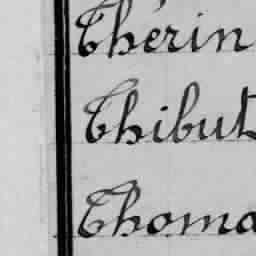 Thérin
Thibut
Thoma